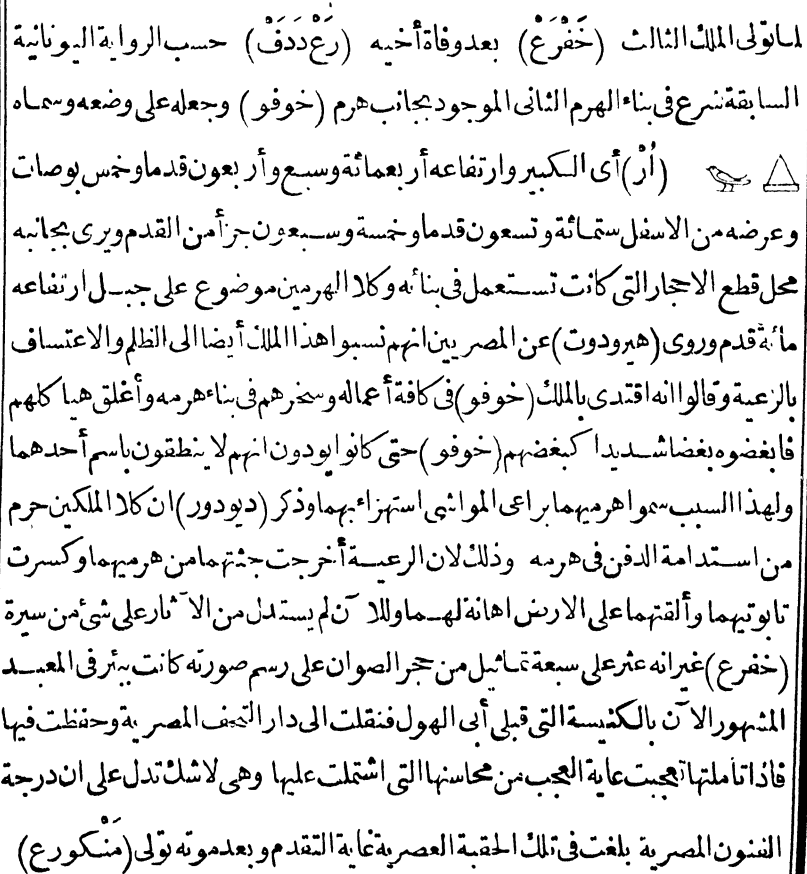 لما تولى الملك الثالث (خَفْرَعْ) بعد وفاة أخيه (رَعْ دَدَفْ) حسب الرواية اليونانية
السابقة شرع فى بناء الهرم الثانى الموجود بجانب هرم (خوفو) وجعله على وضعه وسماه
(اُرْ) أى الكبير وارتفاعه أربعمائة وسبع وأربعون قدما وخمس بوصات
وعرضه من الاسفل ستمائة وتسعون قدما وخمسة وسبعون جزأ من القدم ويرى بجانبه
محل قطع الاحجار التى كانت تستعمل فى بنائه وكلا الهرمين موضوع على جبل ارتفاعه
مائة قدم وروى (هيرودوت) عن المصريين انهم نسبوا هذا الملك أيضا الى الظلم والاعتساف
بالرعية وقالوا انه اقتدى بالملك (خوفو) فى كافة أعماله وسخرهم فى بناء هرمه وأغلق هياكلهم
فابغضوه بغضا شديدا كبغضهم (خوفو) حتى كانوا يودون انهم لا ينطقون باسم أحدهما
ولهذا السبب سموا هرميهما براعى المواشى استهزاء بهما وذكر (ديودور) ان كلا الملكين حرم
من استدامة الدفن فى هرمه وذلك لان الرعية أخرجت جثتهما من هرميهما وكسرت
تابوتيهما وألقتهما على الارض اهانة لهما وللآن لم يستدل من الآثار على شئ من سيرة
(خفرع) غير انه عثر على سبعة تماثيل من حجر الصوان على رسم صورته كانت ببئر فى المعبد
المشهور الآن بالكنيسة التى قبلى أبى الهول فنقلت الى دار التحف المصرية وحفظت فيها
فاذا تأملتها تعجبت غاية العجب من محاسنها التى اشتملت عليها وهى لاشك تدل على ان درجة
الفنون المصرية بلغت فى تلك الحقبة العصرية غاية التقدم وبعد موته تولى (مَنْكَورع)